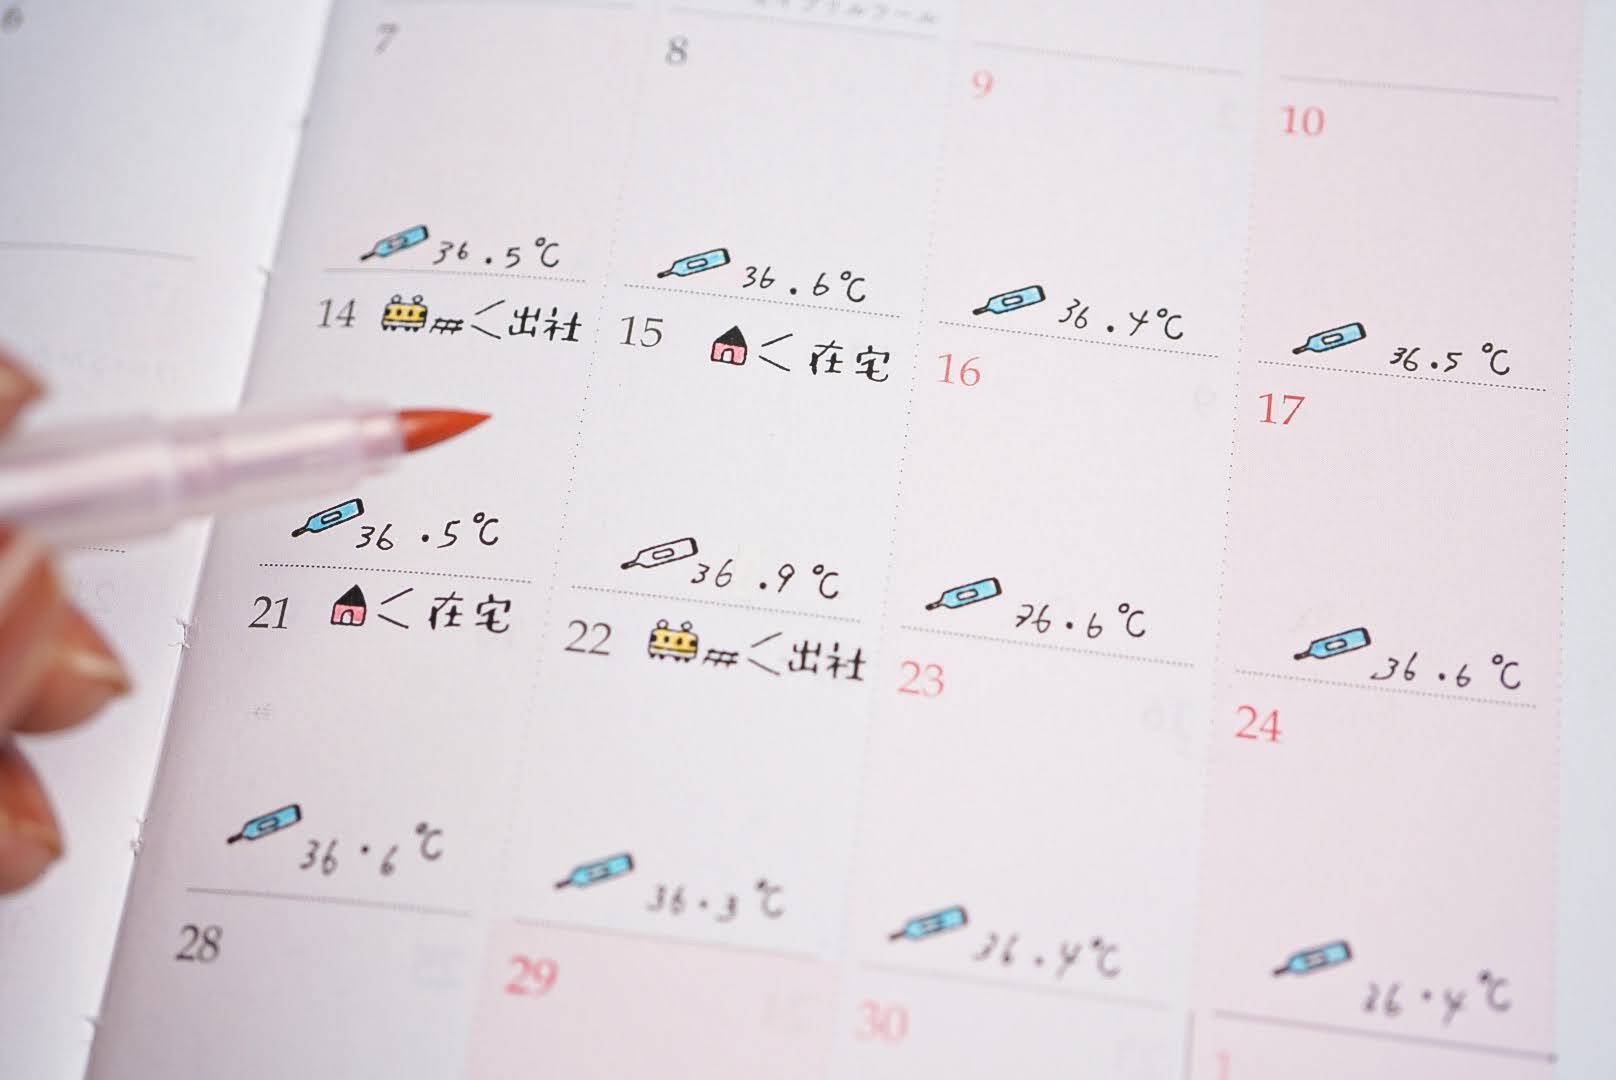 エイプリルフール
7
8
9
10
36.5℃
36.6℃
36.4℃
36.5℃
14 出社
15 在宅
16
17
36.5℃
36.9℃
36.6℃
36.6℃
21 在宅
22 出社
23
24
36.6℃
36.3℃
36.4℃
36.4℃
28
29
30
1